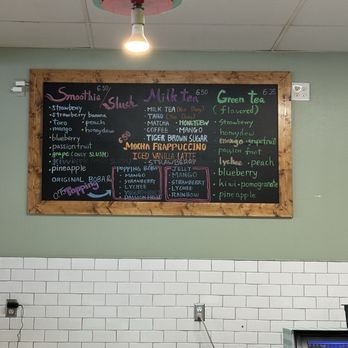 Smoothie 6.50
Slush
· strawberry
· strawberry banana
· Taro · peach
· mango · honeydew
· blueberry
· passion fruit
· grape (only SLUSH)
· pineapple
ORIGINAL BOBA &
Popping
Milk tea 6.50
· MILK TEA (No Dairy)
· TARO (No Dairy)
· MATCHA · HONEYDEW
· COFFEE · MANGO
· TIGER BROWN SUGAR
6.50
MOCHA FRAPPUCCINO
ICED VANILLA LATTE
STRAWBERRY
POPPING BOBA
· MANGO
· STRAWBERRY
· LYCHEE
· PASSION FRUIT
JELLY
· MANGO
· STRAWBERRY
· LYCHEE
· RAINBOW
Green tea 6.25
(flavored)
· Strawberry
· honeydew
· mango · grapefruit
· passion fruit
· lychee · peach
· blueberry
· kiwi · pomegranate
· pineapple